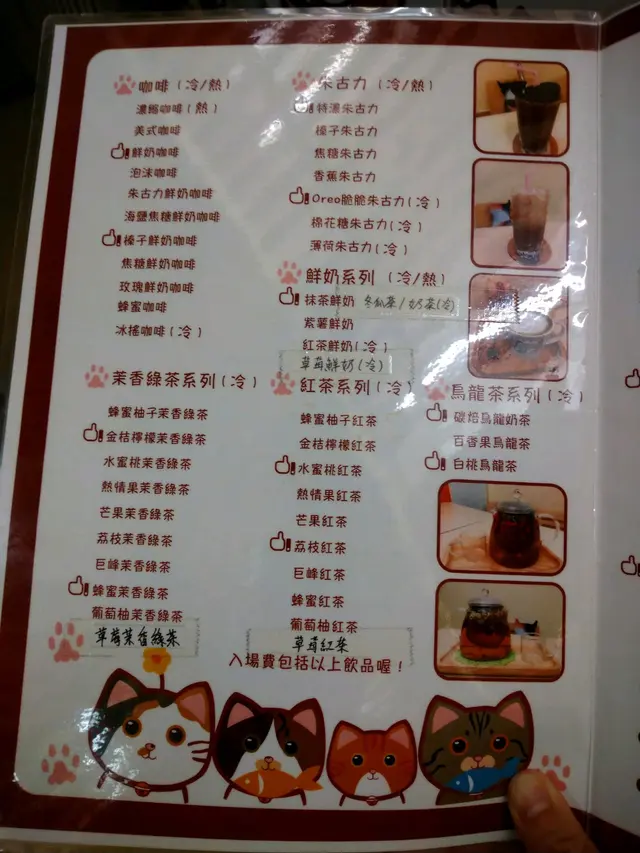 咖啡（冷/熱）
濃縮咖啡（熱）
美式咖啡
鮮奶咖啡
泡沫咖啡
朱古力鮮奶咖啡
海鹽焦糖鮮奶咖啡
榛子鮮奶咖啡
焦糖鮮奶咖啡
玫瑰鮮奶咖啡
蜂蜜咖啡
冰搖咖啡（冷）
朱古力（冷/熱）
特濃朱古力
榛子朱古力
焦糖朱古力
香蕉朱古力
Oreo脆脆朱古力（冷）
棉花糖朱古力（冷）
薄荷朱古力（冷）
鮮奶系列（冷/熱）
抹茶鮮奶
冬瓜茶/奶茶(冷)
紫薯鮮奶
紅茶鮮奶（冷）
草莓鮮奶(冷)
茉香綠茶系列（冷）
蜂蜜柚子茉香綠茶
金桔檸檬茉香綠茶
水蜜桃茉香綠茶
熱情果茉香綠茶
芒果茉香綠茶
荔枝茉香綠茶
巨峰茉香綠茶
蜂蜜茉香綠茶
葡萄柚茉香綠茶
草莓茉香綠茶
紅茶系列（冷）
蜂蜜柚子紅茶
金桔檸檬紅茶
水蜜桃紅茶
熱情果紅茶
芒果紅茶
荔枝紅茶
巨峰紅茶
蜂蜜紅茶
葡萄柚紅茶
草莓紅茶
烏龍茶系列（冷）
碳焙烏龍奶茶
百香果烏龍茶
白桃烏龍茶
入場費包括以上飲品喔！